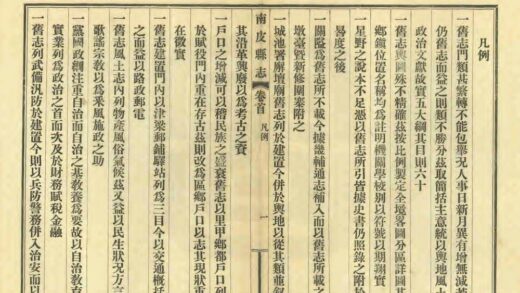 凡例
一舊志門類甚繁轉不能包舉況人事日新月異有增無減茲
仍舊志而益之則類不勝分茲取簡括主意統以輿地風土
政治文獻故實五大綱其目則六十
一舊志輿圖殊不精確茲按比例製定全境畧圖分區詳圖其
鄉鎭位置名稱均爲註明機關學校別以符號以期翔實
一星野之說本不足憑以舊志所引皆據史書仍照錄之附於
晷度之後
一關隘爲舊志所不載今據畿輔通志補入而以舊志所載之
墩臺曁新修圍寨附之
一城池署廨壇廟舊志列於建置今併於輿地以從其類並叙
其沿革興廢以爲考古之資
南皮縣志 卷首 凡例 一
一戶口之增減可以稽民族之盛衰舊志以里甲鄉都戶口列
於賦役門內重在存古茲則改爲區鄉戶口以志其現狀重
在徵實
一舊志建置門內以津梁郵鋪驛站列爲三目今以交通概括
之而益以路政郵電
一舊志風土志內列物產風俗氣候茲又益以民生狀況方言
歌謠宗敎以爲采風施政之助
一黨國政綱注重自治而自治之基敎養爲要故以自治敎育
實業列爲政治之首而次及於財務賦稅金融
一舊志列武備汛防於建置今則以兵防警務併入治安而以